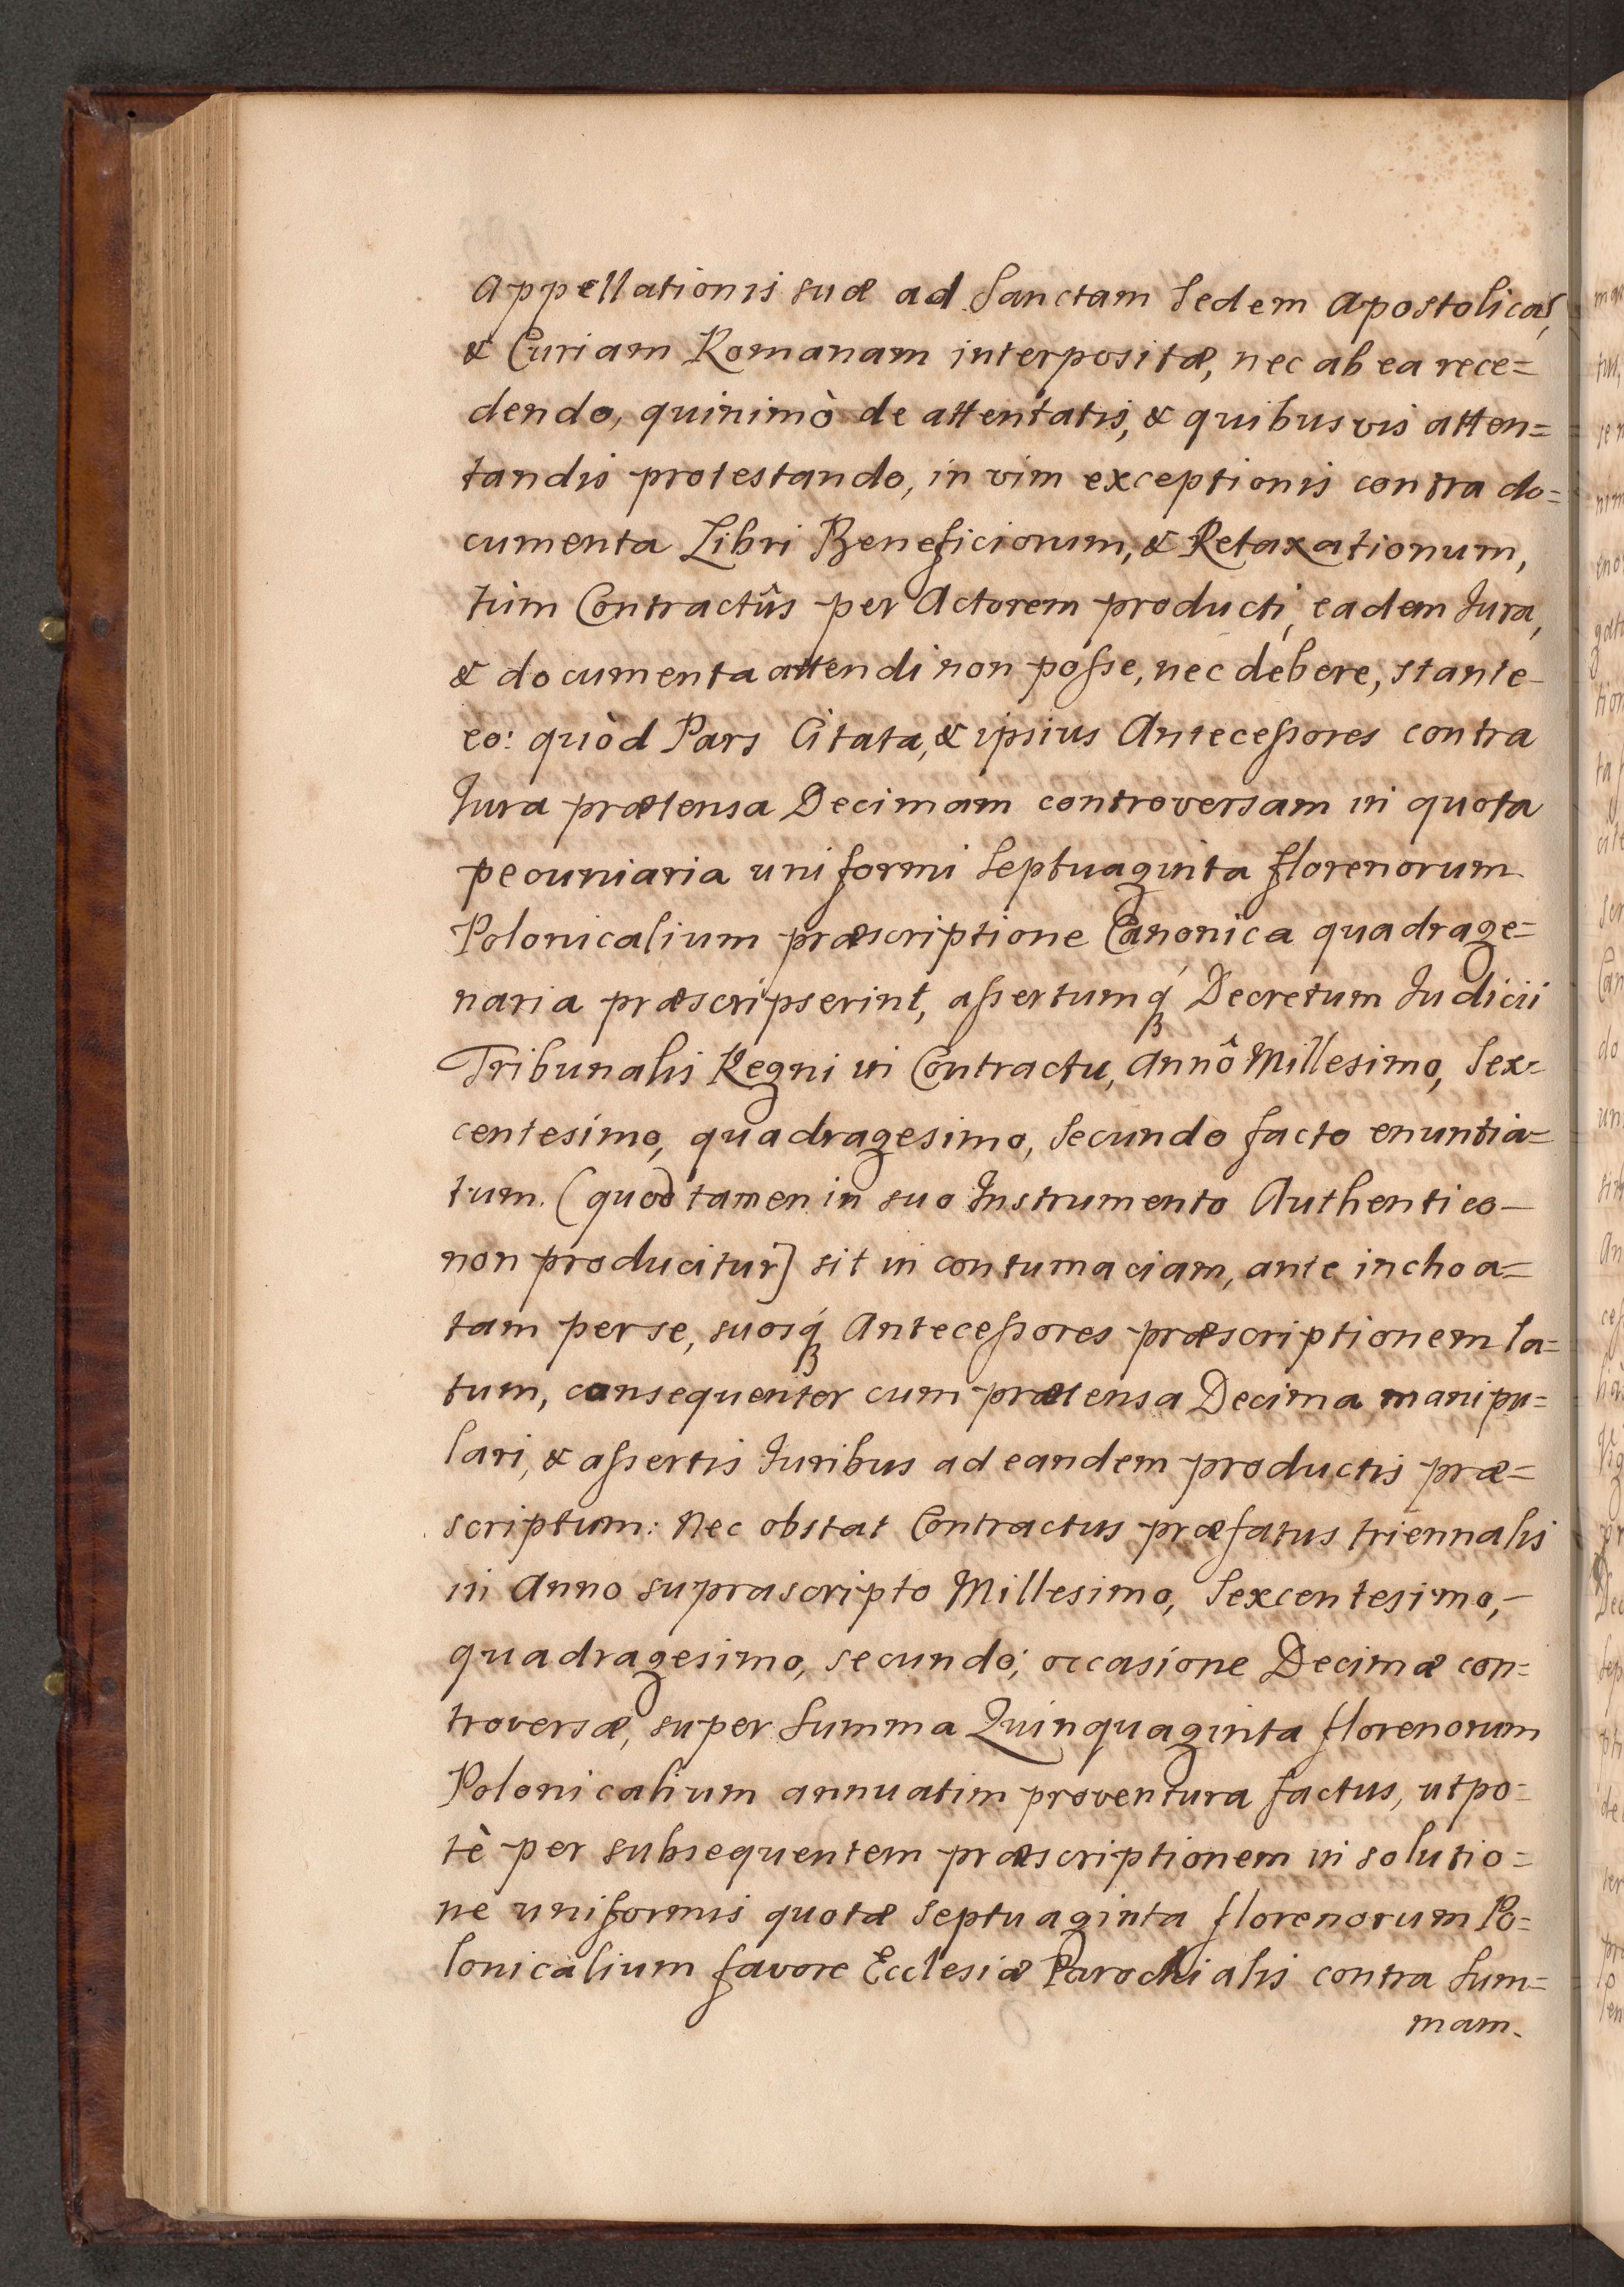 Appellationis suæ ad Sanctam Sedem Apostolicā,
& Curiam Romanam interpositæ, nec ab ea rece=
dendo, quinimò de attentatis, & quibusvis atten=
tandis protestando, in vim exceptionis contra do=
cumenta Libri Beneficiorum, & Retaxationum,
tùm Contractûs per Actorem producti, eadem Jura,
& documenta attendi non posse, nec debere, stante
eo: quòd Pars Citata, & ipsius Antecessores contra
Jura prætensa Decimam controversam in quota
pecuniaria uniformi Septuaginta florenorum
Polonicalium præscriptione Canonica quadrage=
naria præscripserint, assertumq́; Decretum Judicii
Tribunalis Regni in Contractu, Annô Millesimo, Sex=
centesimo, quadragesimo, Secundo facto enuntia=
tum. (quod tamen in suo Instrumento Authentico—
non producitur] sit in contumaciam, ante inchoa=
tam per se, suosq́; Antecessores præscriptionem la=
tum, consequenter cum prætensa Decima manipu=
lari, & assertis Juribus ad eandem productis præ=
scriptum: Nec obstat Contractus præfatus triennalis
in Anno suprascripto Millesimo, Sexcentesimo,—
quadragesimo, secundo; occasione Decimæ con=
troversæ, super Summa Quinquaginta florenorum
Polonicalium annuatim proventura factus, utpo=
tè per subsequentem præscriptionem in solutio=
ne uniformis quotæ Septuaginta florenorum Po=
lonicalium favore Ecclesiæ Parochialis contra Sum=
mam.